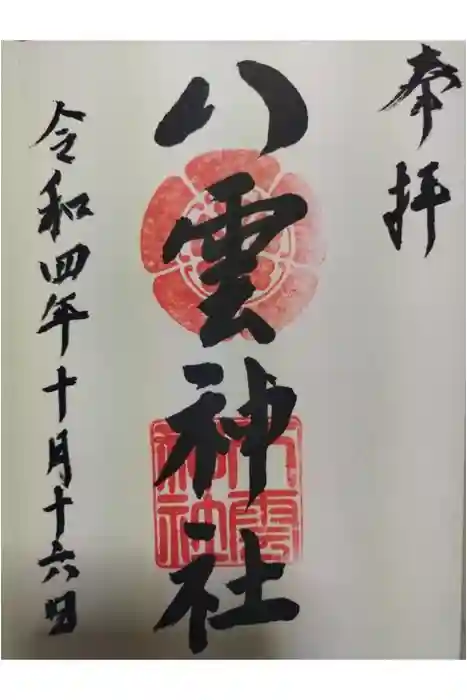 奉拝
八雲神社
八雲
神社
令和四年十月十六日